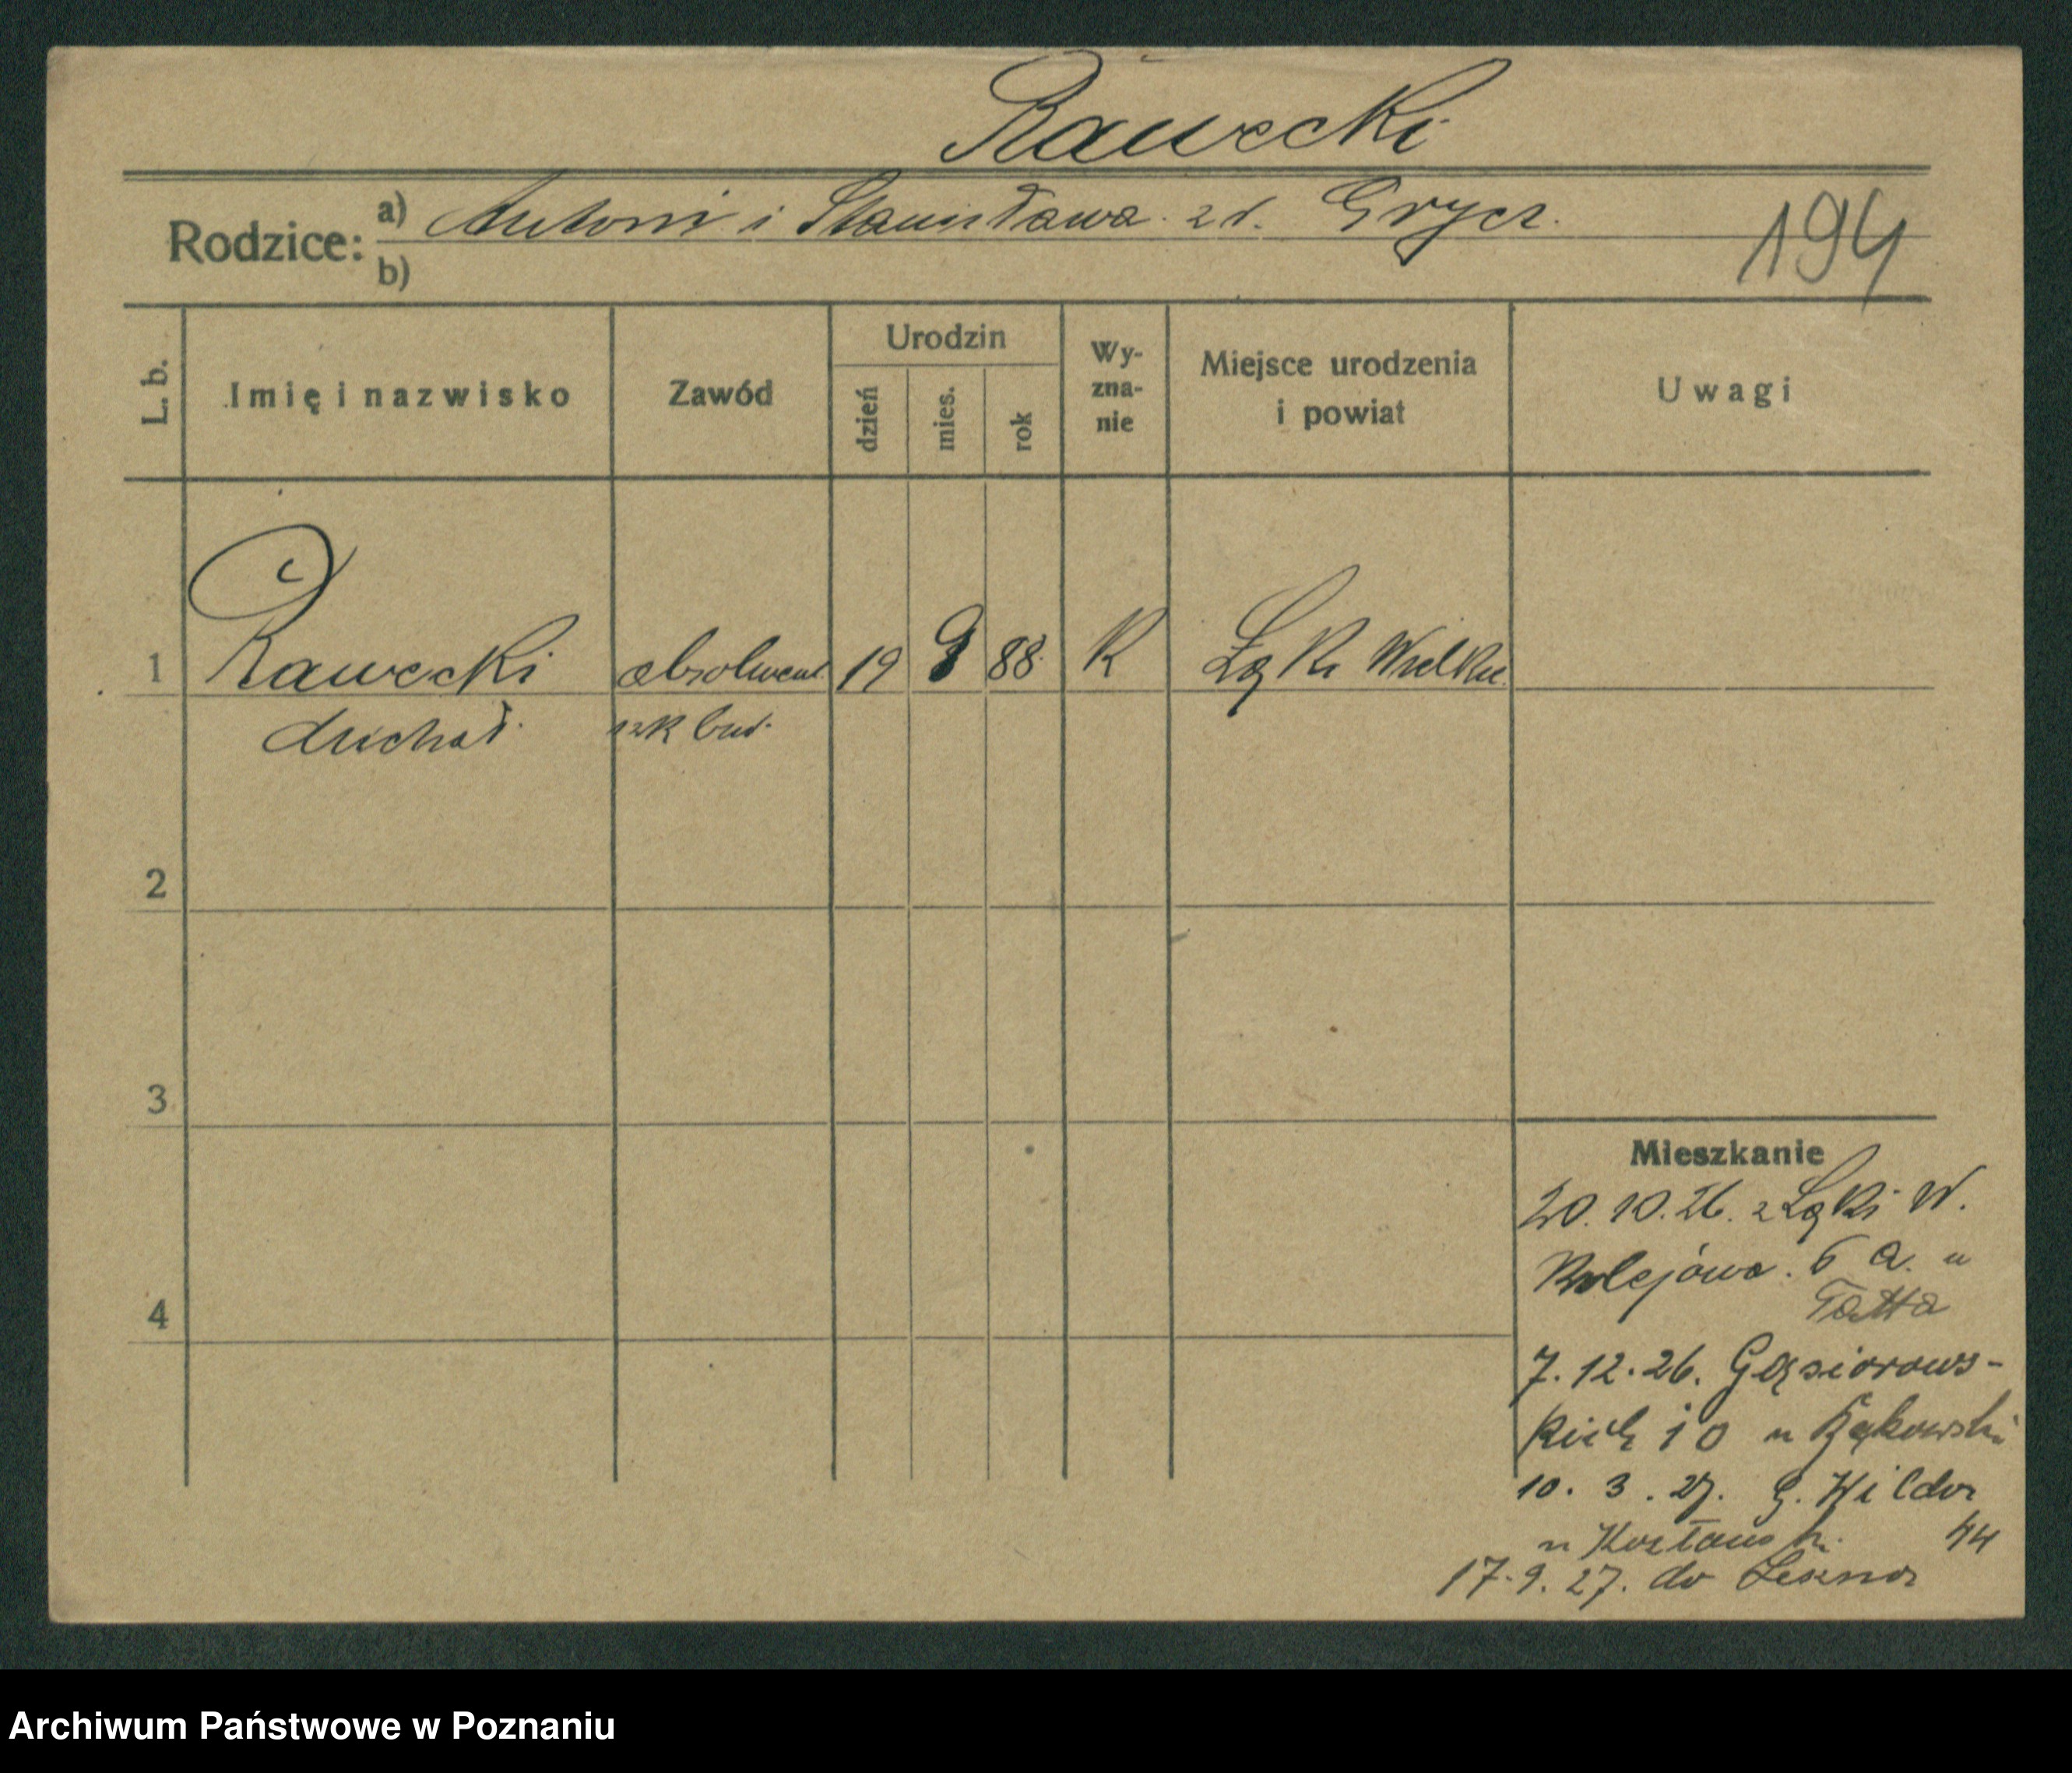 Rawecki
Rodzice: a) Antoni i Stanisława zd. Grycz.
b)
194
L. b. Imię i nazwisko Zawód Urodzin dzień mies. rok Wy-zna-nie Miejsce urodzenia i powiat Uwagi
1 Rawecki absolwent 19 9 88 K Łąki Wielkie
Michał szk bud.
2
3
4
Mieszkanie
20.10.26. z Łąki W.
Kolejowa. 6 a. u
Tatta
7.12.26. Gąsiorows-
kich 10 u Bąkowski
10. 3. 27. G. Wilda
u Kozłowsk. 44
17.9.27. do Leszna
Archiwum Państwowe w Poznaniu